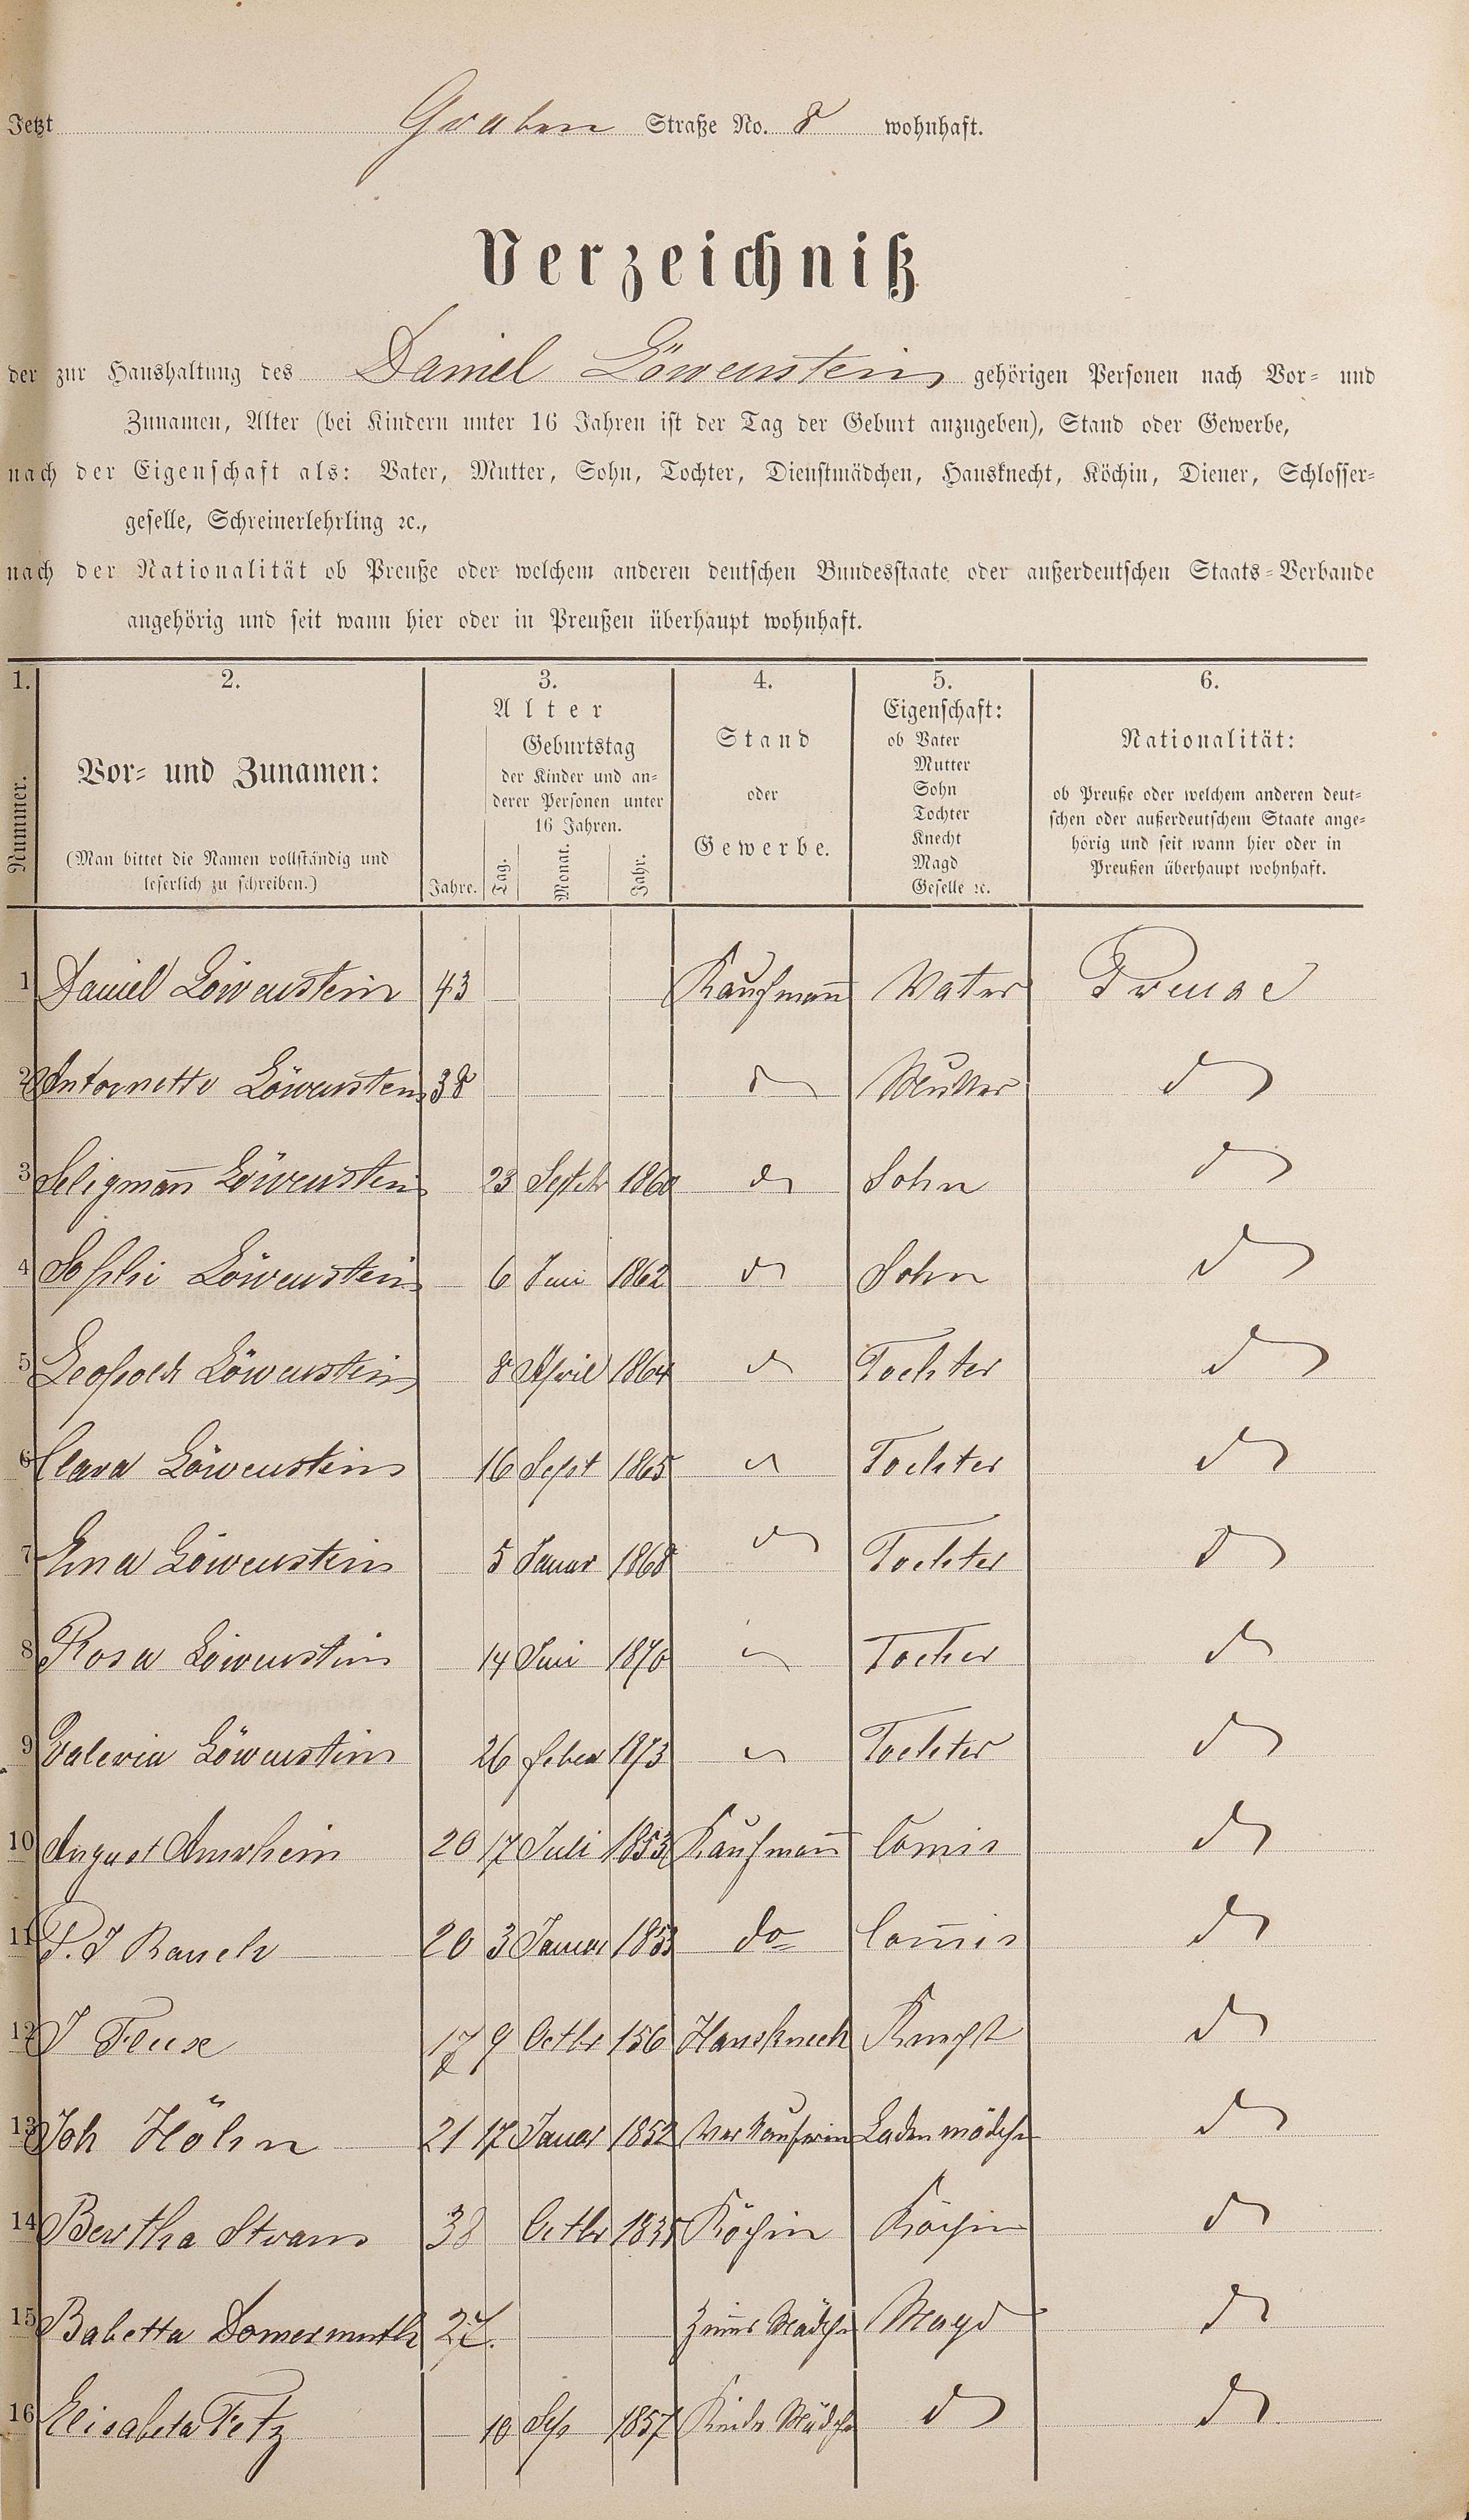 Jetzt Graben Straße No. 8 wohnhaft.
Verzeichniß
der zur Haushaltung des Daniel Löwenstein gehörigen Personen nach Vor- und
Zunamen, Alter (bei Kindern unter 16 Jahren ist der Tag der Geburt anzugeben), Stand oder Gewerbe,
nach der Eigenschaft als: Vater, Mutter, Sohn, Tochter, Dienstmädchen, Hausknecht, Köchin, Diener, Schlosser-
geselle, Schreinerlehrling ꝛc.,
nach der Nationalität ob Preuße oder welchem anderen deutschen Bundesstaate oder außerdeutschen Staats-Verbande
angehörig und seit wann hier oder in Preußen überhaupt wohnhaft.
1. 2. 3. 4. 5. 6.
Nummer.
Vor- und Zunamen:
(Man bittet die Namen vollständig und
leserlich zu schreiben.)
Alter
Jahre.
Geburtstag
der Kinder und an-
derer Personen unter
16 Jahren.
Tag. Monat. Jahr.
Stand
oder
Gewerbe.
Eigenschaft:
ob Vater
Mutter
Sohn
Tochter
Knecht
Magd
Geselle ꝛc.
Nationalität:
ob Preuße oder welchem anderen deut-
schen oder außerdeutschem Staate ange-
hörig und seit wann hier oder in
Preußen überhaupt wohnhaft.
1 Daniel Löwenstein 43 Kaufmann Vater Preuse
2 Antoinette Löwenstein 38 do Mutter do
3 Seligmann Löwenstein 23 Septbr 1860 do Sohn do
4 Sophi Löwenstein 6 Juni 1862 do Sohn do
5 Leopold Löwenstein 8 April 1864 do Tochter do
6 Clara Löwenstein 16 Sept 1865 do Tochter do
7 Ema Löwenstein 5 Januar 1868 do Tochter do
8 Rosa Löwenstein 14 Juni 1870 do Tocher do
9 Valeria Löwenstein 26 Feber 1873 do Tochter do
10 August Amrhein 20 17 Juli 1853 Kaufmann Comis do
11 P. J Rauch 20 3 Januar 1853 do Commis do
12 J 17 9 Octbr 156 Hausknech Knecht do
13 Joh Höhn 21 17 Januar 1852 Verkauferin Laden mädchen do
14 Bertha Straus 38 Octbr 1835 Köchin Köchin do
15 Babetta Domermuth 27. Zimmer Mädchen Magd do
16 Elisabeta Fetz 10 Sep 1857 Kinder Mädchen do do